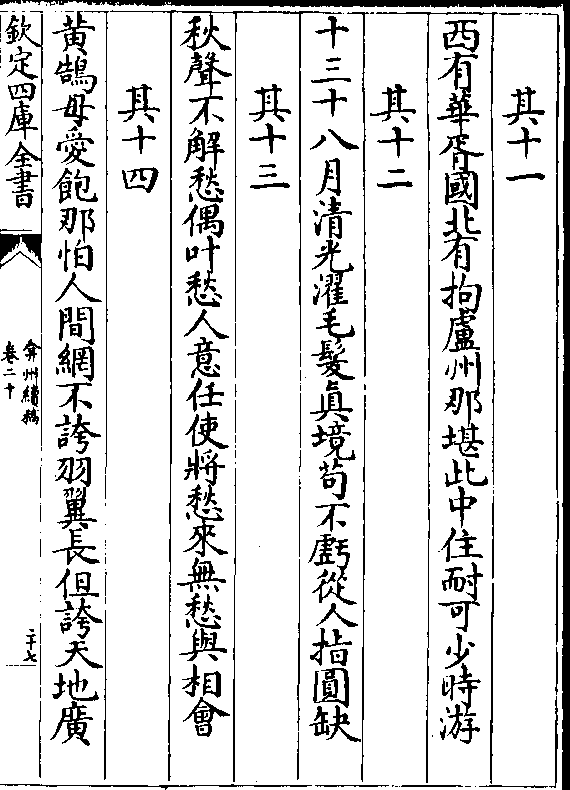 其十一
西有華胥國北有拘盧州那堪此中住耐可少時游
其十二
十三十八月清光濯毛髮眞境苟不虧從人指圓缺
其十三
秋聲不解愁偶叶愁人意任使將愁來無愁與相會
其十四
黄鵠母愛飽那怕人間網不誇羽翼長但誇天地廣
欽定四庫全書
弇州續稿
卷二十
二十七